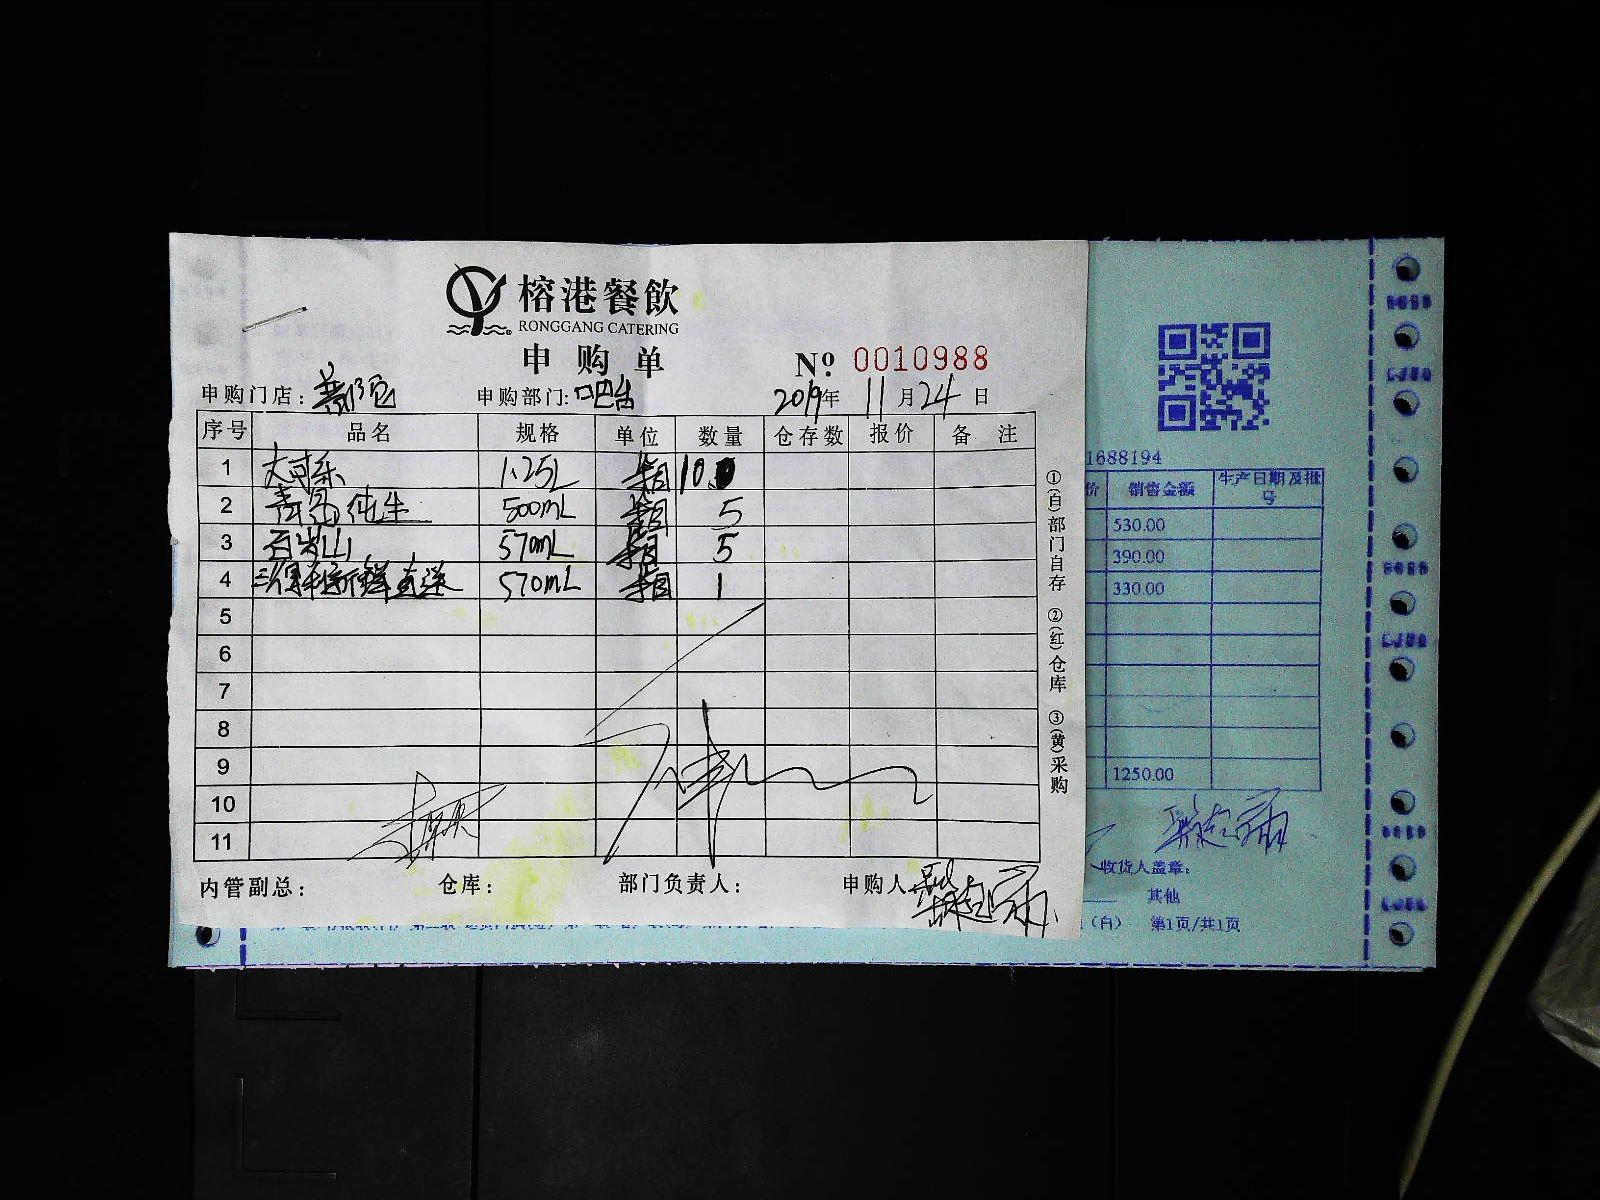 榕港餐飲
RONGGANG CATERING
申购单
Nº 0010988
申购门店： 申购部门：吧台 2019年11月24日
序号 品名 规格 单位 数量 仓存数 报价 备注
1 大可乐 1.25L 箱 10
2 青岛纯生 500mL 箱 5
3 百岁山 570mL 箱 5
4 新鲜直送 570mL 箱 1
5
6
7
8
9
10
11
内管副总： 仓库： 部门负责人： 申购人
①(白)部门自存 ②(红)仓库 ③(黄)采购
1688194
价 销售金额 生产日期及批号
530.00
390.00
330.00
1250.00
收货人盖章：
其他
（白） 第1页/共1页